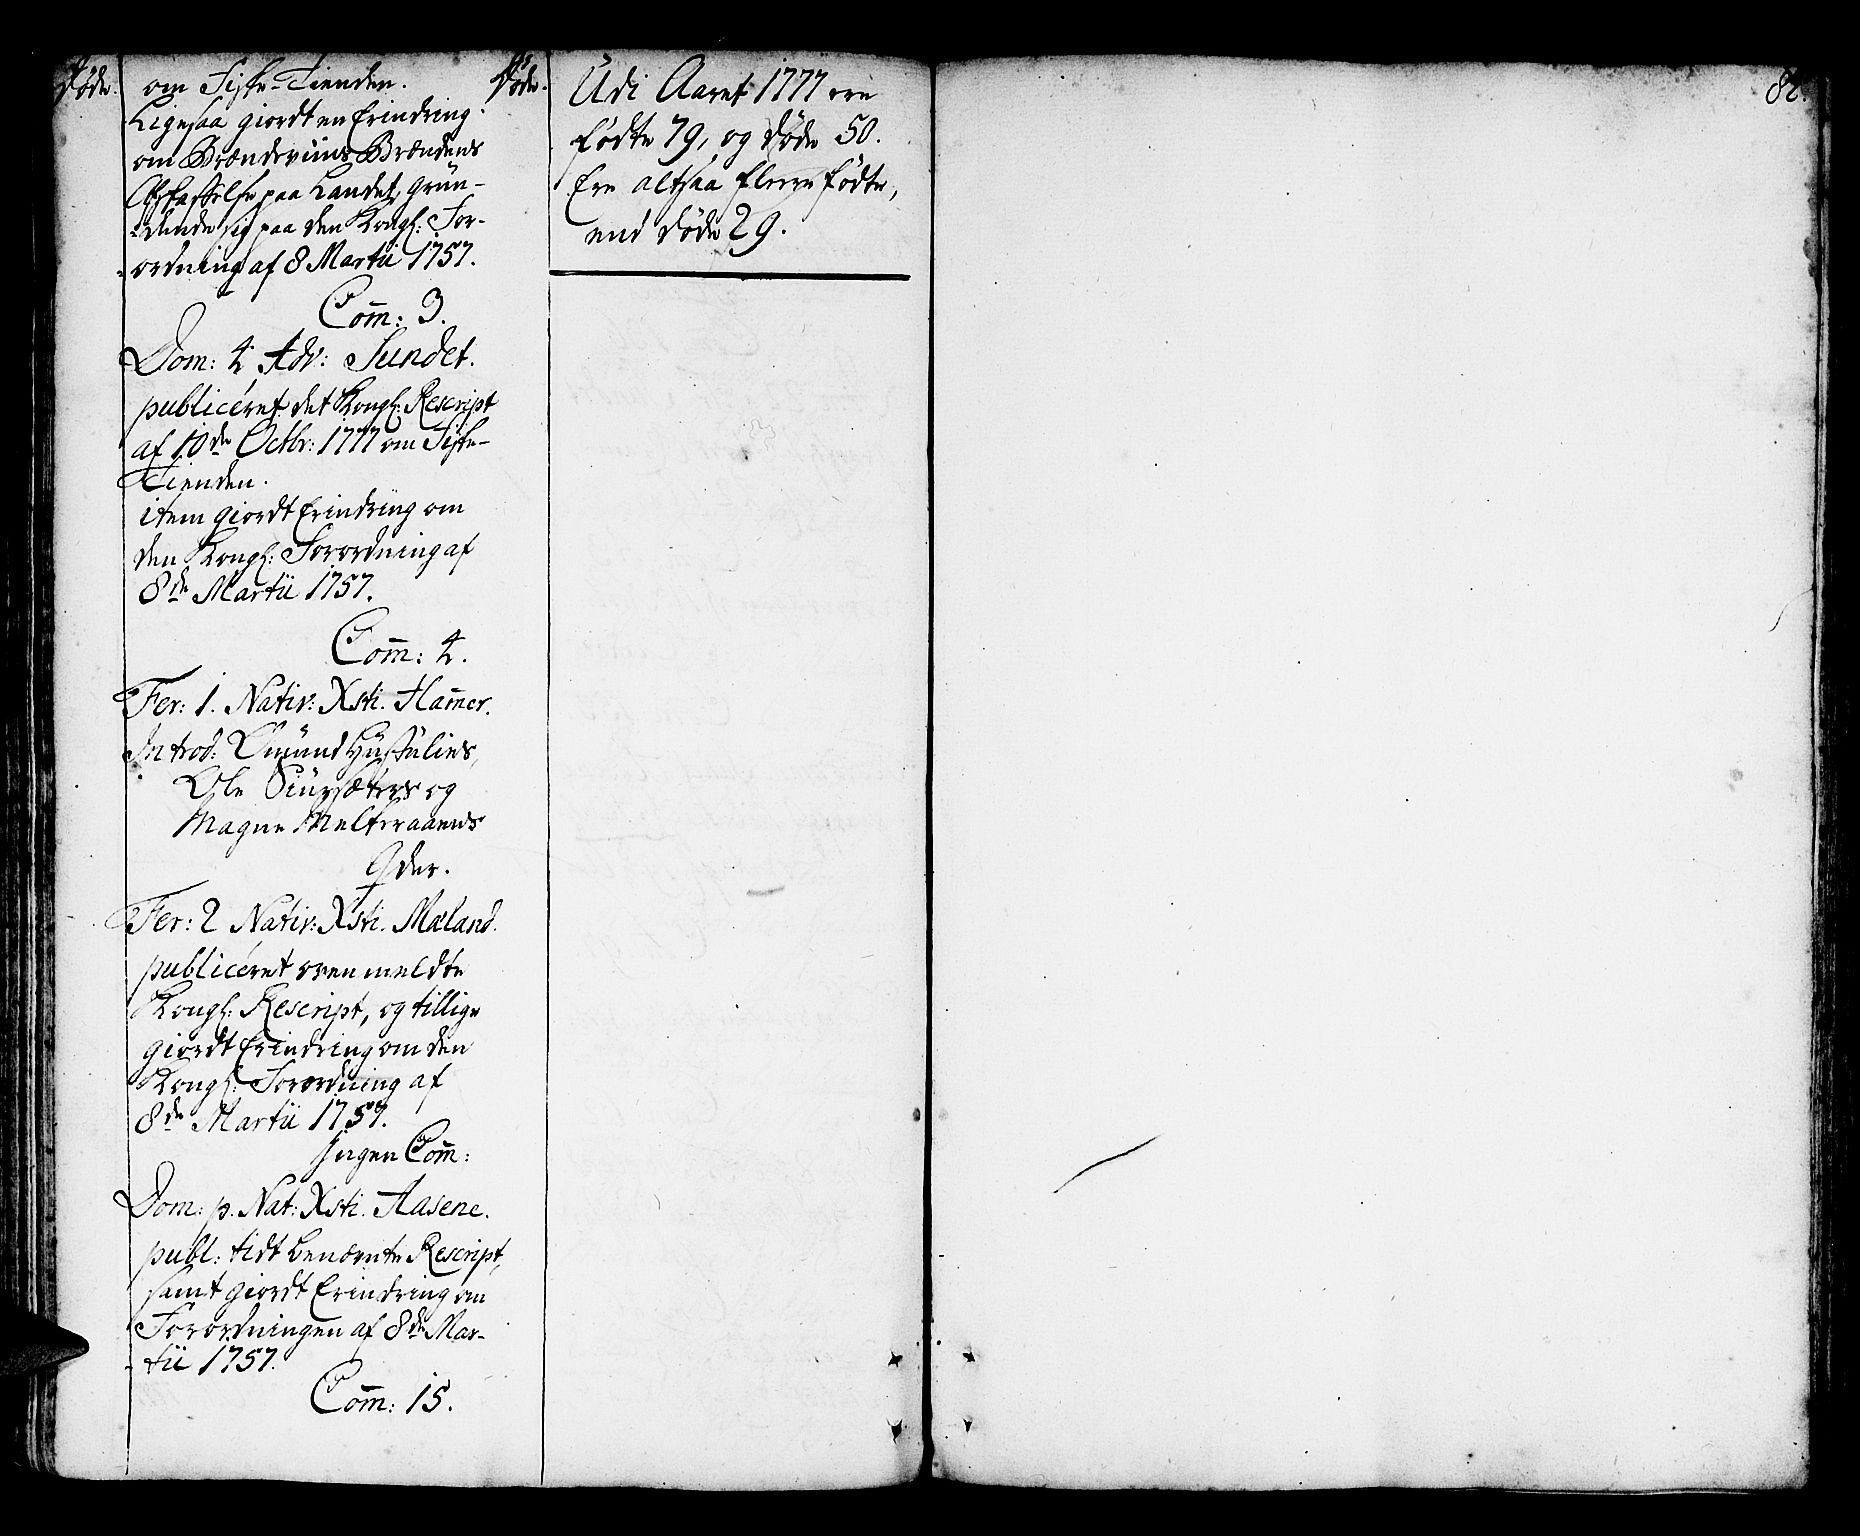 Døde.
om Fiske-Tienden.
Ligesaa giordt en Erindring
om Brændeviins Brændens
Afskaffelse paa Landet, grün-
dende sig paa den Kongl: For-
ordning af 8 Martii 1757.
Com̄: 3.
Dom: 4 Adv: Sundet.
publicéret det Kongl: Rescript
af 10de Octbr: 1777 om Fiske-
Tienden.
item giordt Erindring om
den Kongl: Forordning af
8de Martii 1757.
Com̄: 4.
Fer: 1. Nativ: Xsti. Ham̄er.
Introd: Omünd
Ole og
Magne
Qder.
Fer: 2 Nativ: Xsti. Mæland.
publicéret ovenmeldte
Kongl: Rescript, og tillige
giordt Erindring om den
Kongl: Forordning af
8de Martii 1757.
Ingen Com̄:
Dom: p. Nat: Xsti. Aasene.
publ: tidt benævnte Rescript,
samt giordt Erindring om
Forordningen af 8de Mar-
tii 1757.
Com̄: 15.
Døde.
Udi Aaret 1777 ere
fødte 79, og døde 50.
Ere altsaa fleere fødte,
end døde 29.
82.